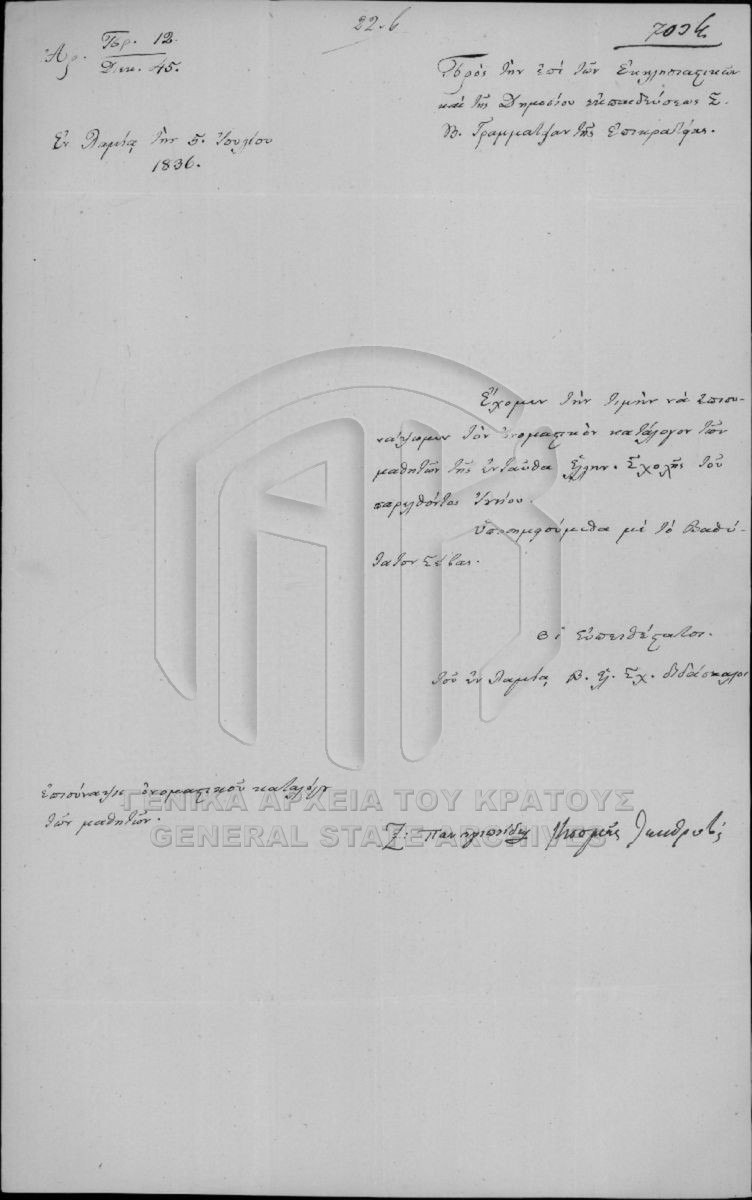 22.6
7036
Ἀρ. Πρ. 12.
Διεκ. 45.
Πρὸς τὴν ἐπὶ τῶν Ἐκκλησιαστικῶν
καὶ τῆς Δημοσίου ἐκπαιδεύσεως Σ.
Β. Γραμματείαν τῆς Ἐπικρατείας.
Ἐν Λαμίᾳ τὴν 5. Ἰουλίου
1836.
Ἔχομεν τὴν τιμὴν νὰ ἐπισυ-
νάψωμεν τὸν ὀνομαστικὸν κατάλογον τῶν
μαθητῶν τῆς ἐνταῦθα Ἑλλην. Σχολῆς τοῦ
παρελθόντος Ἰουνίου.
Ὑποσημειούμεθα μὲ τὸ βαθύ-
τατον σέβας.
Οἱ εὐπειθέστατοι.
τοῦ ἐν Λαμίᾳ Β. Ἑλ. Σχ. διδάσκαλοι
ἐπισύναψις ὀνομαστικοῦ καταλόγου
τῶν μαθητῶν.
ΓΕΝΙΚΑ ΑΡΧΕΙΑ ΤΟΥ ΚΡΑΤΟΥΣ
GENERAL STATE ARCHIVES
Ζ.